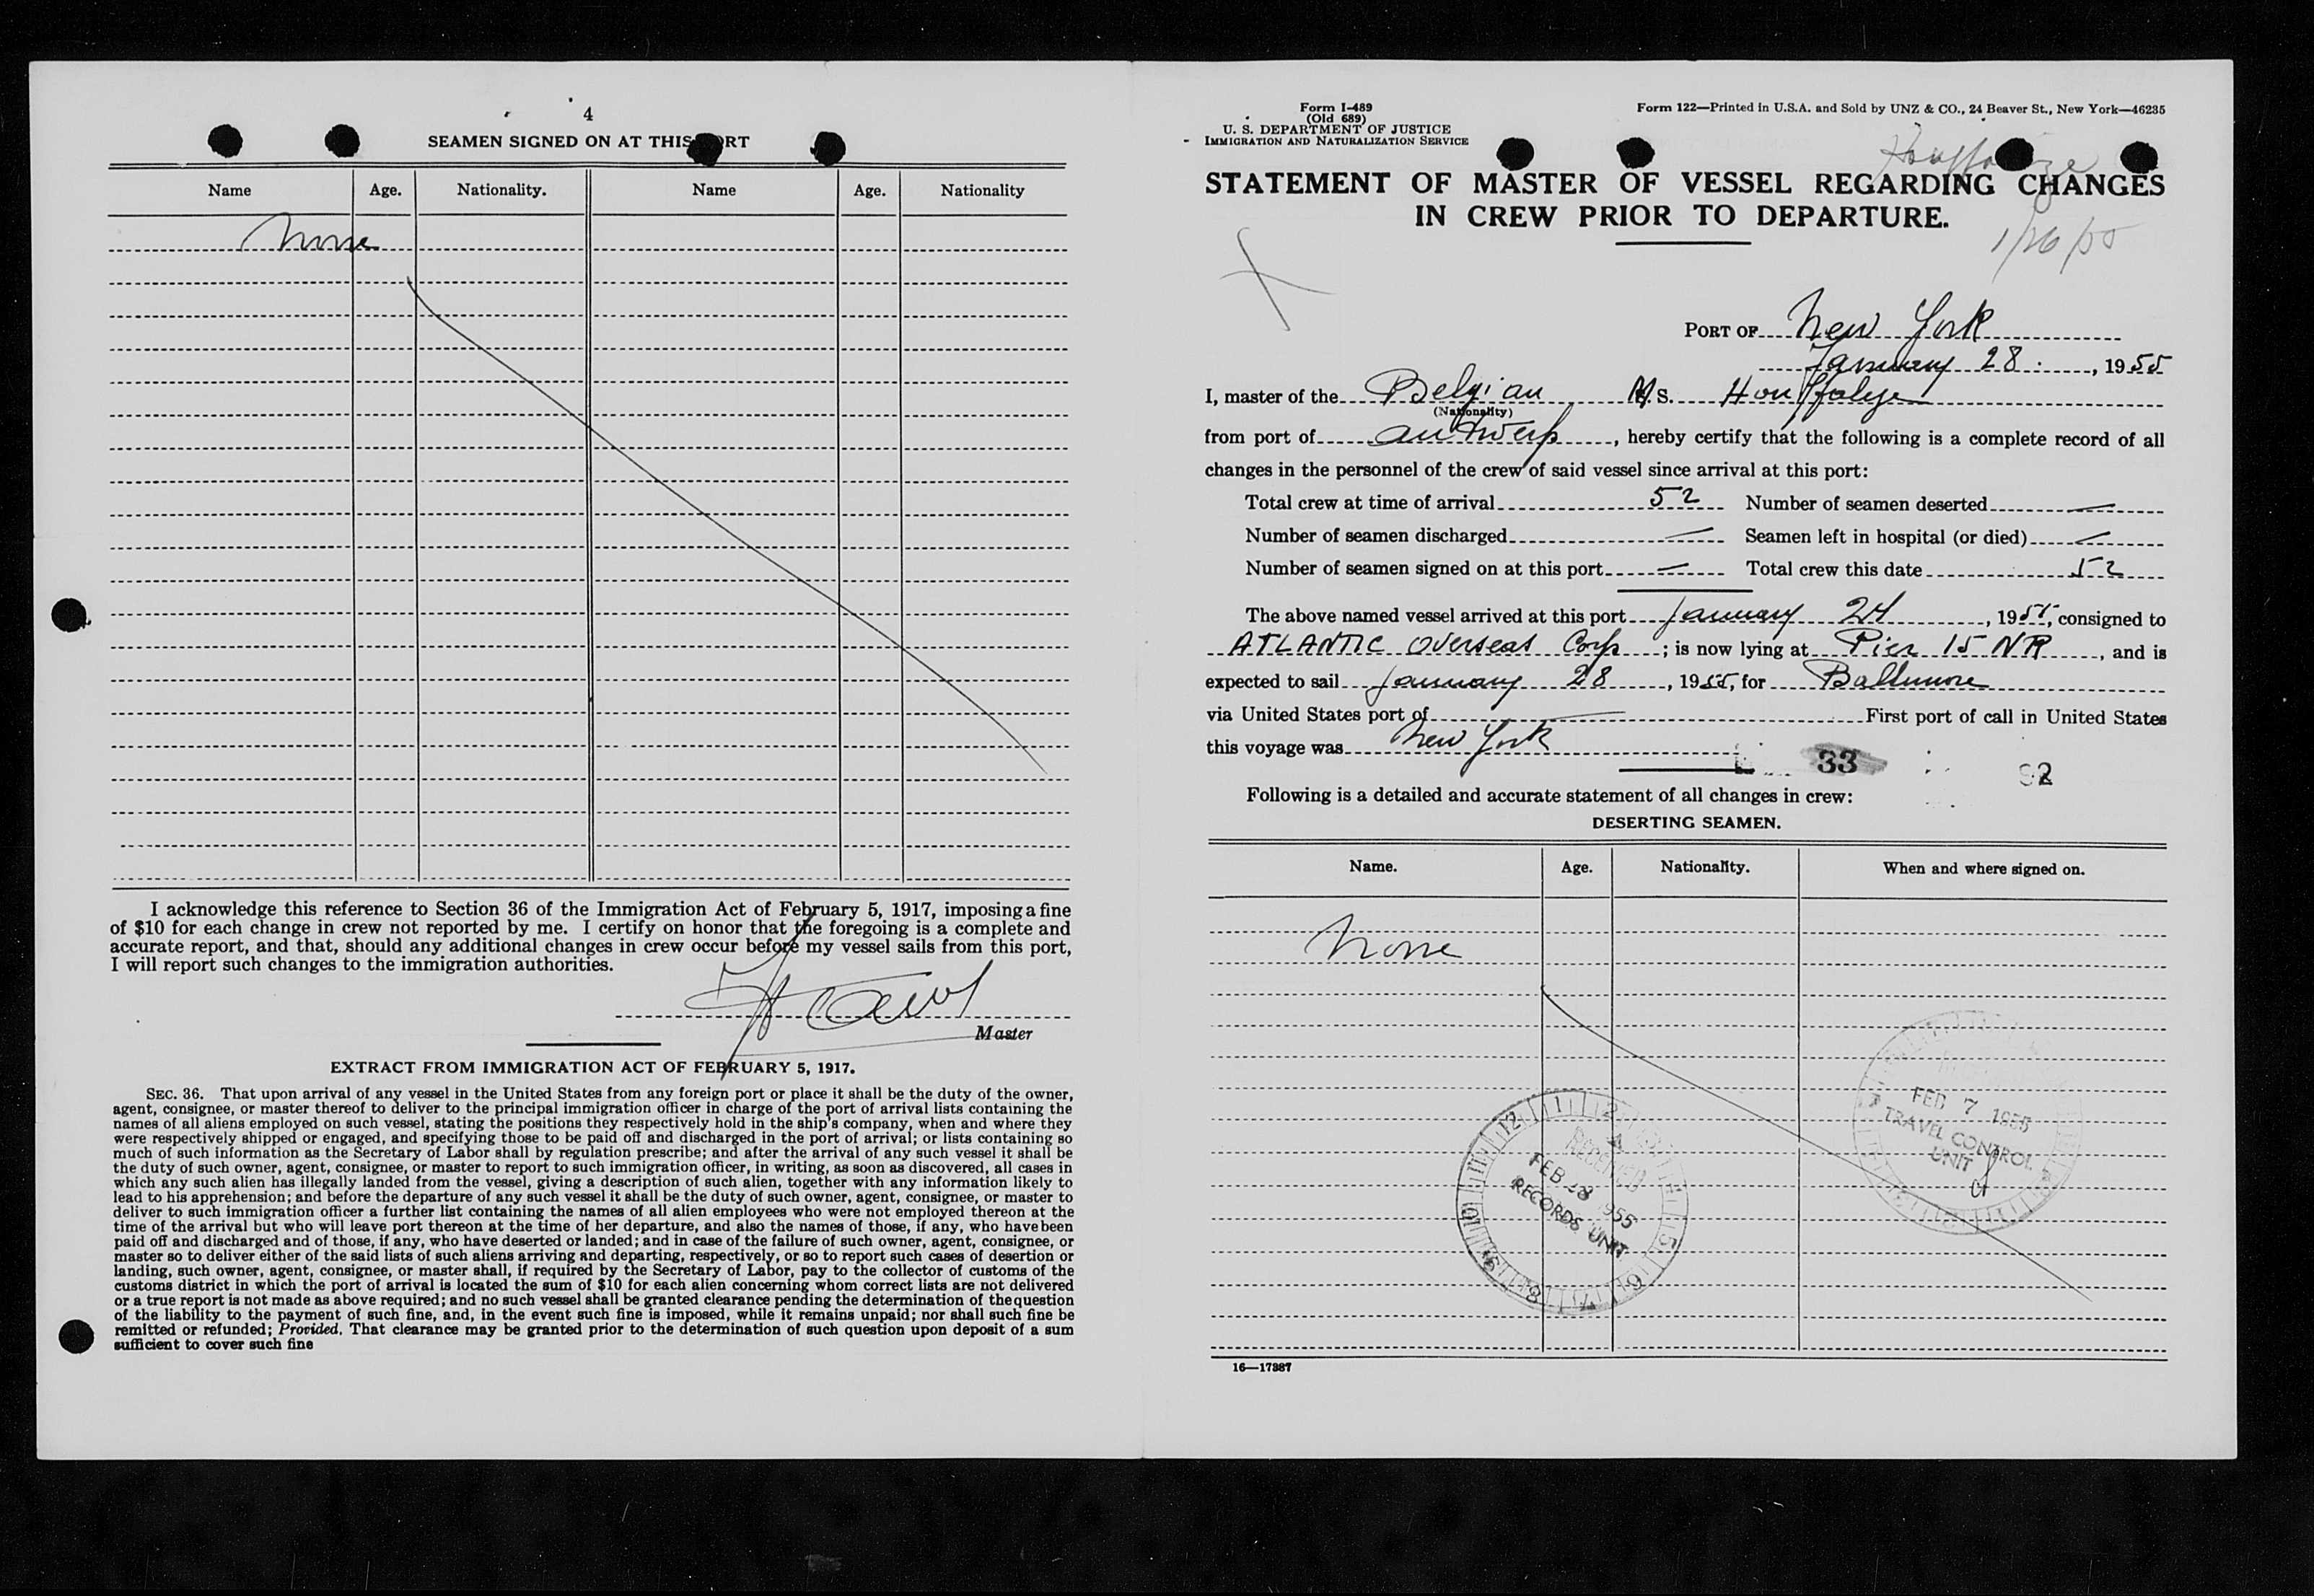 4
SEAMEN SIGNED ON AT THIS PORT
Name Age. Nationality. Name Age. Nationality
None
I acknowledge this reference to Section 36 of the Immigration Act of February 5, 1917, imposing a fine
of $10 for each change in crew not reported by me. I certify on honor that the foregoing is a complete and
accurate report, and that, should any additional changes in crew occur before my vessel sails from this port,
I will report such changes to the immigration authorities.
Master
EXTRACT FROM IMMIGRATION ACT OF FEBRUARY 5, 1917.
SEC. 36. That upon arrival of any vessel in the United States from any foreign port or place it shall be the duty of the owner,
agent, consignee, or master thereof to deliver to the principal immigration officer in charge of the port of arrival lists containing the
names of all aliens employed on such vessel, stating the positions they respectively hold in the ship's company, when and where they
were respectively shipped or engaged, and specifying those to be paid off and discharged in the port of arrival; or lists containing so
much of such information as the Secretary of Labor shall by regulation prescribe; and after the arrival of any such vessel it shall be
the duty of such owner, agent, consignee, or master to report to such immigration officer, in writing, as soon as discovered, all cases in
which any such alien has illegally landed from the vessel, giving a description of such alien, together with any information likely to
lead to his apprehension; and before the departure of any such vessel it shall be the duty of such owner, agent, consignee, or master to
deliver to such immigration officer a further list containing the names of all alien employees who were not employed thereon at the
time of the arrival but who will leave port thereon at the time of her departure, and also the names of those, if any, who have been
paid off and discharged and of those, if any, who have deserted or landed; and in case of the failure of such owner, agent, consignee, or
master so to deliver either of the said lists of such aliens arriving and departing, respectively, or so to report such cases of desertion or
landing, such owner, agent, consignee, or master shall, if required by the Secretary of Labor, pay to the collector of customs of the
customs district in which the port of arrival is located the sum of $10 for each alien concerning whom correct lists are not delivered
or a true report is not made as above required; and no such vessel shall be granted clearance pending the determination of the question
of the liability to the payment of such fine, and, in the event such fine is imposed, while it remains unpaid; nor shall such fine be
remitted or refunded; Provided, That clearance may be granted prior to the determination of such question upon deposit of a sum
sufficient to cover such fine
Form I-489
(Old 689)
U. S. DEPARTMENT OF JUSTICE
IMMIGRATION AND NATURALIZATION SERVICE
Form 122—Printed in U.S.A. and Sold by UNZ & CO., 24 Beaver St., New York—46235
STATEMENT OF MASTER OF VESSEL REGARDING CHANGES
IN CREW PRIOR TO DEPARTURE.
1/26/55
PORT OF New York
January 28, 1955
I, master of the Belgian M.S. Houffalize
(Nationality)
from port of Antwerp, hereby certify that the following is a complete record of all
changes in the personnel of the crew of said vessel since arrival at this port:
Total crew at time of arrival 52 Number of seamen deserted —
Number of seamen discharged — Seamen left in hospital (or died) —
Number of seamen signed on at this port — Total crew this date 52
The above named vessel arrived at this port January 24, 1955, consigned to
ATLANTIC Overseas Corp; is now lying at Pier 15 NR, and is
expected to sail January 28, 1955, for Baltimore
via United States port of — First port of call in United States
this voyage was New York
33 92
Following is a detailed and accurate statement of all changes in crew:
DESERTING SEAMEN.
Name. Age. Nationality. When and where signed on.
None
FEB 7 1955
TRAVEL CONTROL
UNIT
RECEIVED
FEB 28 1955
RECORDS UNIT
16—17387